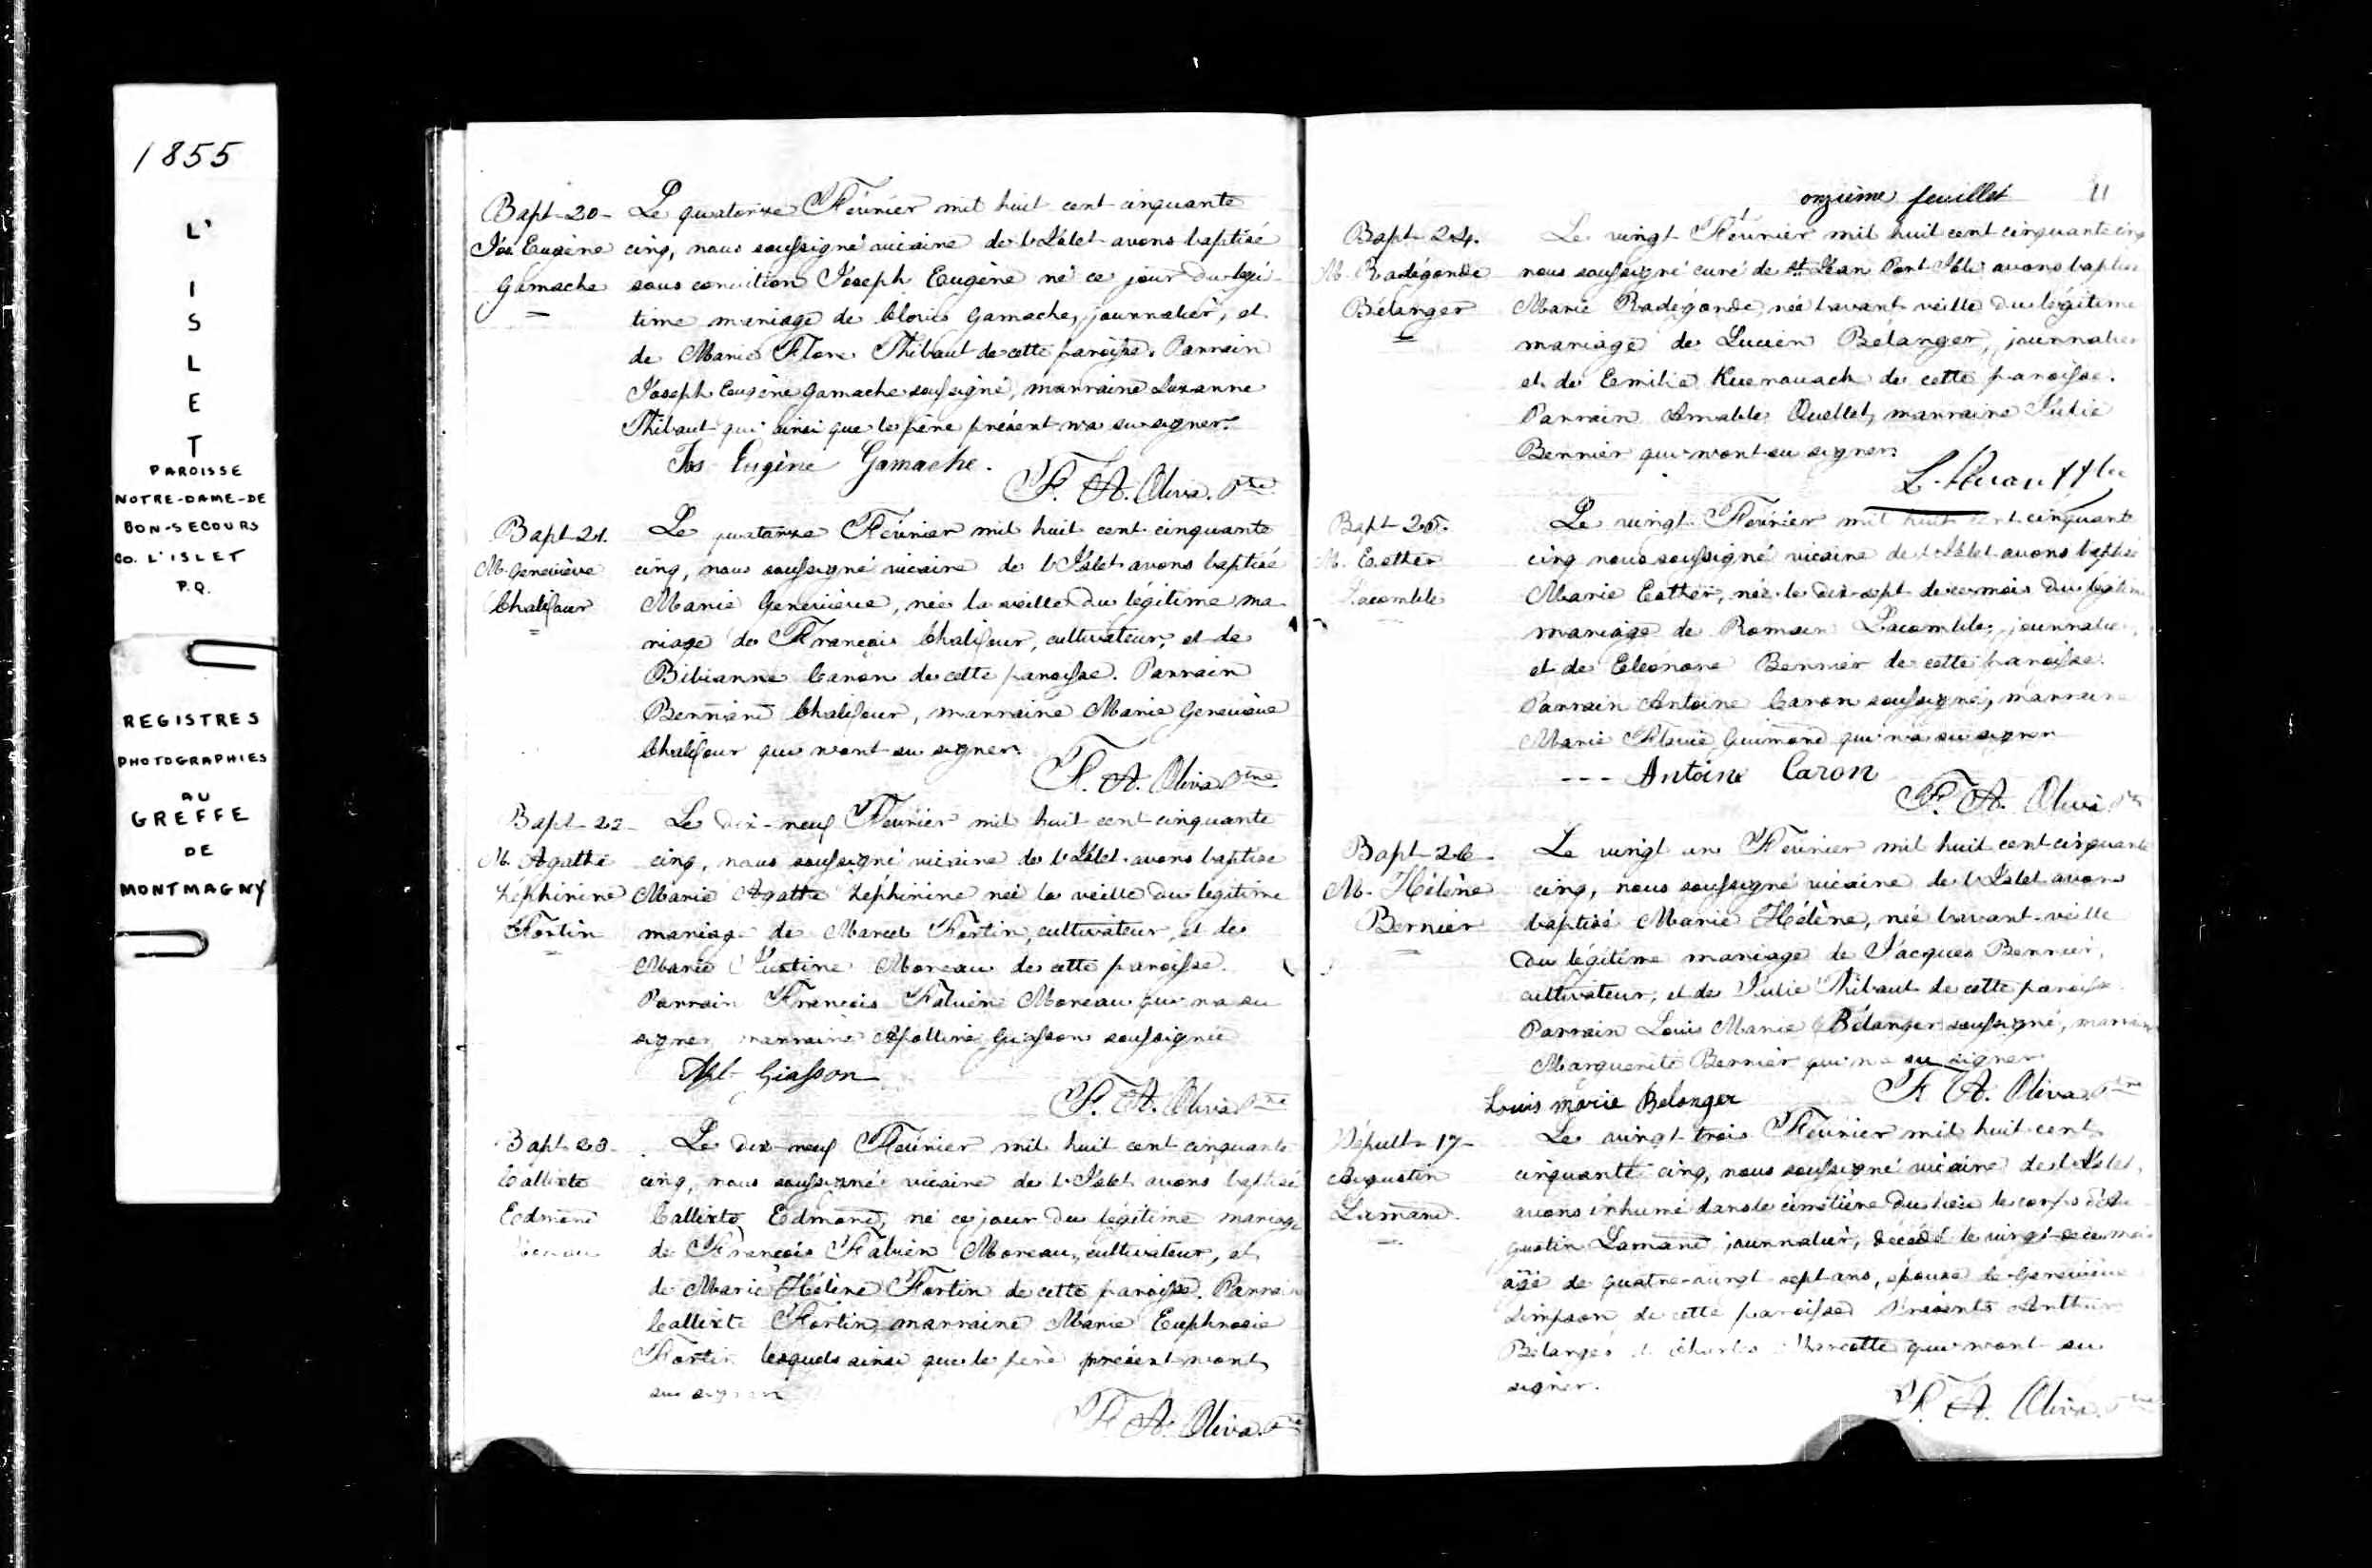 1855
L'
I
S
L
E
T
PAROISSE
NOTRE-DAME-DE
BON-SECOURS
CO. L'ISLET
P.Q.
REGISTRES
PHOTOGRAPHIES
AU
GREFFE
DE
MONTMAGNY
Bapt-20-
Jos Eugène
Gamache
Le quatorze Février mil huit cent cinquante
cinq, nous soussigné vicaire de l'Islet avons baptisé
sous condition Joseph Eugène né ce jour du légi-
time mariage de Cloris Gamache, journalier, et
de Marie Flore Thibaut de cette paroisse. Parrain
Joseph Eugène Gamache soussigné, marraine Suzanne
Thibaut qui ainsi que le père présent n'a su signer.
Jos Eugène Gamache.
F. A. Oliva. Ptre
Bapt-21.
M. Geneviève
Chalifour
Le quatorze Février mil huit cent cinquante
cinq, nous soussigné vicaire de l'Islet avons baptisé
Marie Geneviève, née la veille du légitime ma-
riage de François Chalifour, cultivateur, et de
Bibianne Caron de cette paroisse. Parrain
Bernard Chalifour, marraine Marie Geneviève
Chalifour qui n'ont su signer.
F. A. Oliva Ptre
Bapt-22-
M. Agathe
Zéphirine
Fortin
Le dix-neuf Février mil huit cent cinquante
cinq, nous soussigné vicaire de l'Islet avons baptisé
Marie Agathe Zéphirine née la veille du légitime
mariage de Marcel Fortin, cultivateur, et de
Marie Justine Moreau de cette paroisse.
Parrain François Fabien Moreau qui n'a su
signer, marraine Apolline Giasson soussignée
Apl. Giasson
F. A. Oliva Ptre
Bapt-23-
Callixte
Edmond
Moreau
Le dix-neuf Février mil huit cent cinquante
cinq, nous soussigné vicaire de l'Islet avons baptisé
Callixte Edmond, né ce jour du légitime mariage
de François Fabien Moreau, cultivateur, et
de Marie Hélène Fortin de cette paroisse. Parrain
Callixte Fortin, marraine Marie Euphrosie
Fortin lesquels ainsi que le père présent n'ont
su signer
F. A. Oliva. Ptre
onzième feuillet 11
Bapt-24.
M. Radégonde
Bélanger
Le vingt Février mil huit cent cinquante cinq
nous soussigné curé de St Jean Port Joli avons baptisé
Marie Radégonde, née l'avant veille du légitime
mariage de Lucien Bélanger, journalier
et de Emilie Kuerouack de cette paroisse.
Parrain Amable Ouellet, marraine Julie
Bernier qui n'ont su signer.
Bapt-25.
M. Esther
Lacombe
Le vingt Février mil huit cent cinquante
cinq nous soussigné vicaire de l'Islet avons baptisé
Marie Esther, née le dix-sept de ce mois du légitime
mariage de Romain Lacombe, journalier,
et de Eléonore Bernier de cette paroisse.
Parrain Antoine Caron soussigné, marraine
Marie Flavie Guimond qui n'a su signer
--- Antoine Caron
F. A. Oliva Ptre
Bapt-26-
M. Hélène
Bernier
Le vingt un Février mil huit cent cinquante
cinq, nous soussigné vicaire de l'Islet avons
baptisé Marie Hélène, née l'avant-veille
du légitime mariage de Jacques Bernier,
cultivateur, et de Julie Thibaut de cette paroisse
Parrain Louis Marie Bélanger soussigné, marraine
Marguerite Bernier qui n'a su signer
Louis marie Belanger
F. A. Oliva Ptre
Sépult-17-
Augustin
Lamand
Le vingt-trois Février mil huit cent
cinquante cinq, nous soussigné vicaire de l'Islet,
avons inhumé dans le cimetière du lieu le corps d'Au
gustin Lamand journalier, décédé le vingt de ce mois
âgé de quatre-vingt sept ans, époux de Geneviève
Simpson de cette paroisse Présents Arthur
Bélanger et Charles Marcotte qui n'ont su
signer.
F. A. Oliva. Ptre